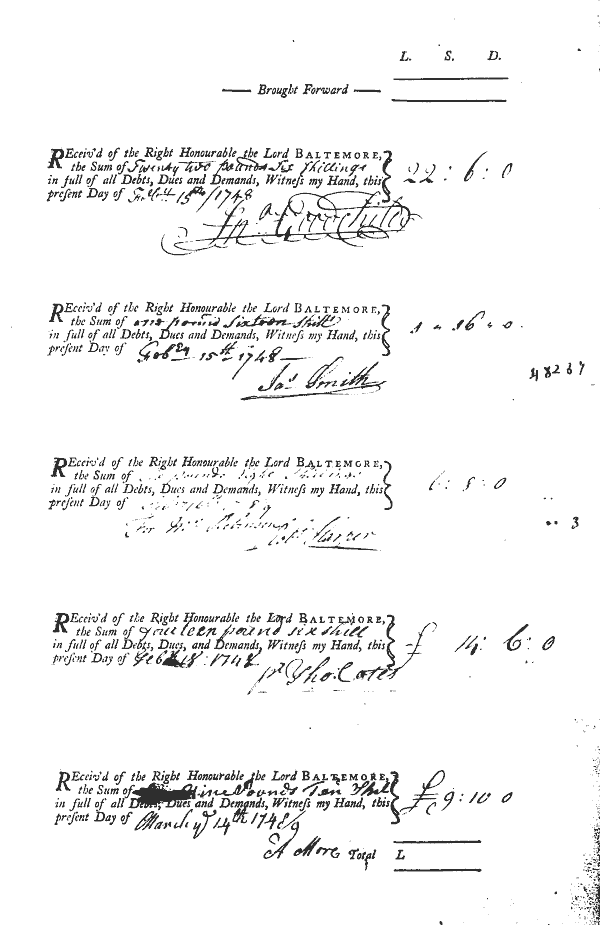 L. S. D.
Brought Forward
REceiv'd of the Right Honourable the Lord BALTEMORE,
the Sum of Twenty two pounds Six Shillings 22 : 6 : 0
in full of all Debts, Dues and Demands, Witness my Hand, this
present Day of 15th 1748
REceiv'd of the Right Honourable the Lord BALTEMORE,
the Sum of one pound sixteen shill 1 " 16 " 0
in full of all Debts, Dues and Demands, Witness my Hand, this
present Day of Feb 15th 1748
Jas Smith
48267
REceiv'd of the Right Honourable the Lord BALTEMORE,
the Sum of pounds Eight Shillings
in full of all Debts, Dues and Demands, Witness my Hand, this 6 : 8 : 0
present Day of
For Mr Robinson
3
REceiv'd of the Right Honourable the Lord BALTEMORE,
the Sum of fourteen pound six shill
in full of all Debts, Dues, and Demands, Witness my Hand, this £ 14 : 6 : 0
present Day of Feb 18 : 1748
pr Tho. Cates
REceiv'd of the Right Honourable the Lord BALTEMORE,
the Sum of Nine Pounds Ten Shill
in full of all Debts, Dues and Demands, Witness my Hand, this £ 9 : 10 0
present Day of March ye 14th 1748/9
A More Total L